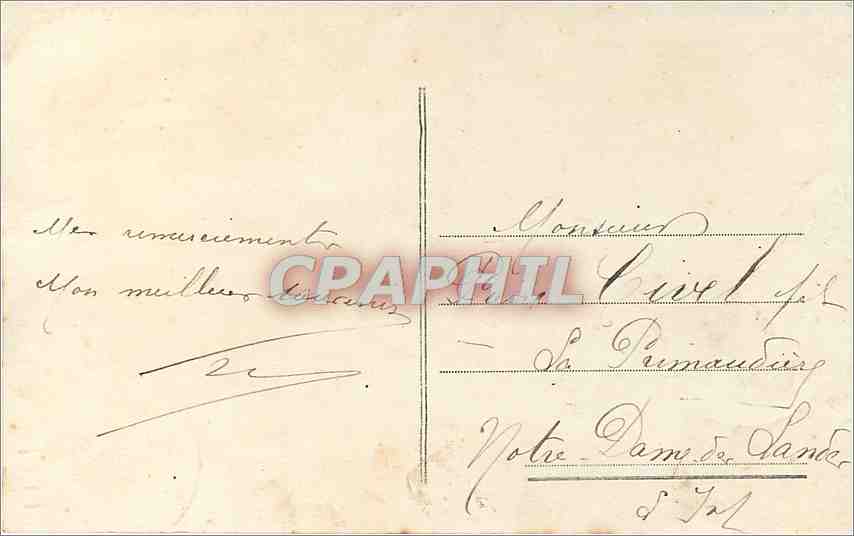 Mes remerciements
Mon meilleur souvenir
CPAPHIL
Monsieur
Civel fils
La Primaudière
Notre-Dame-des-Landes